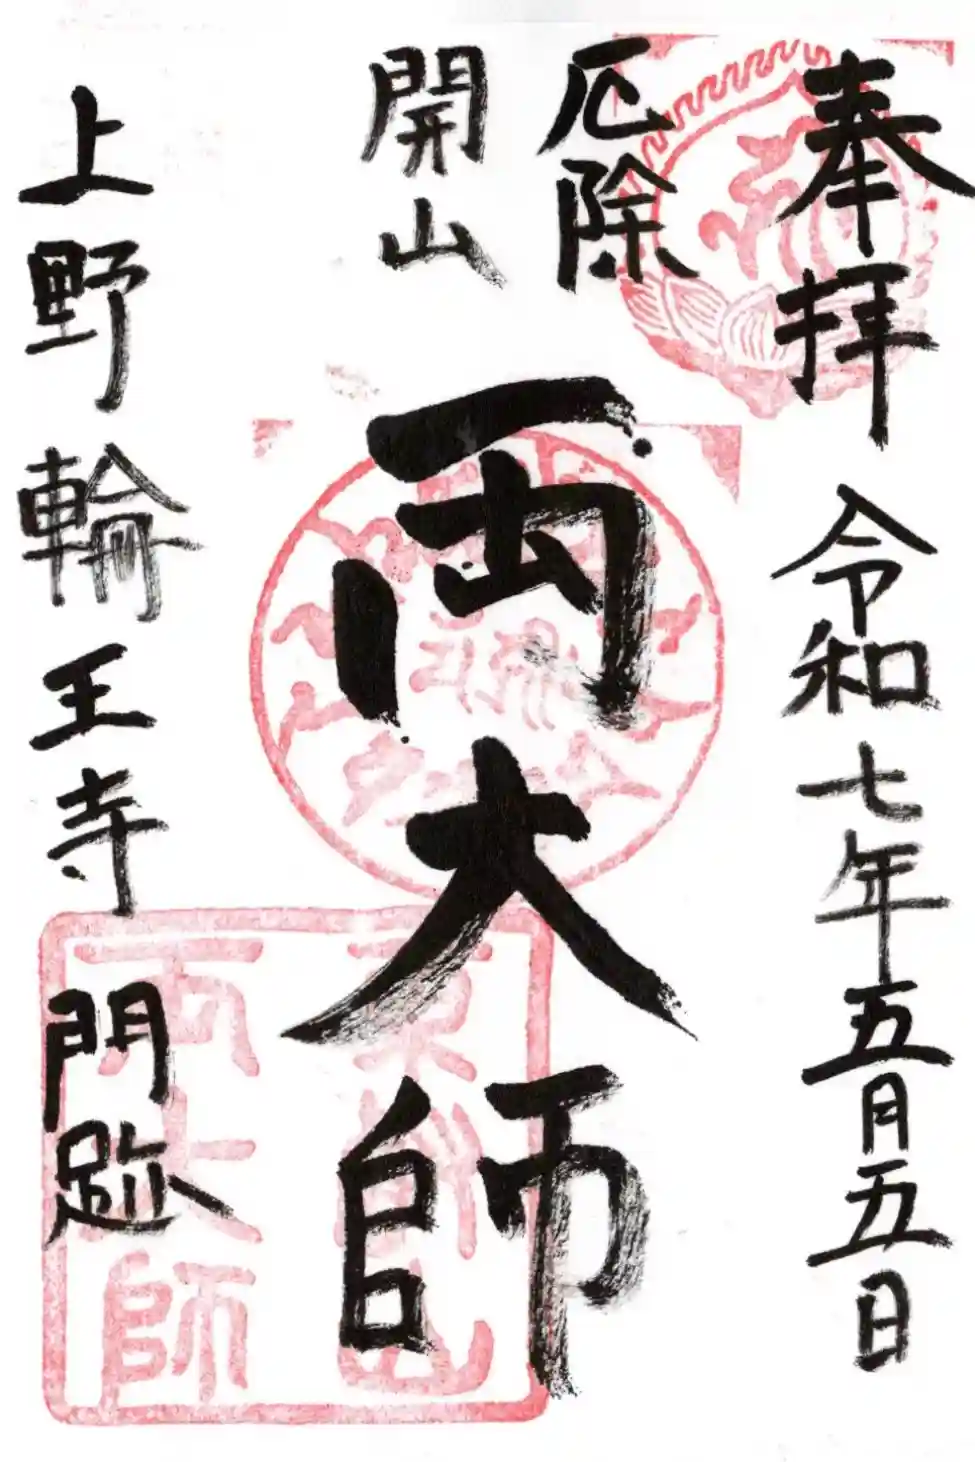 奉拝 令和七年五月五日
厄除
開山
両大師
上野輪王寺門跡
東叡山
両大師